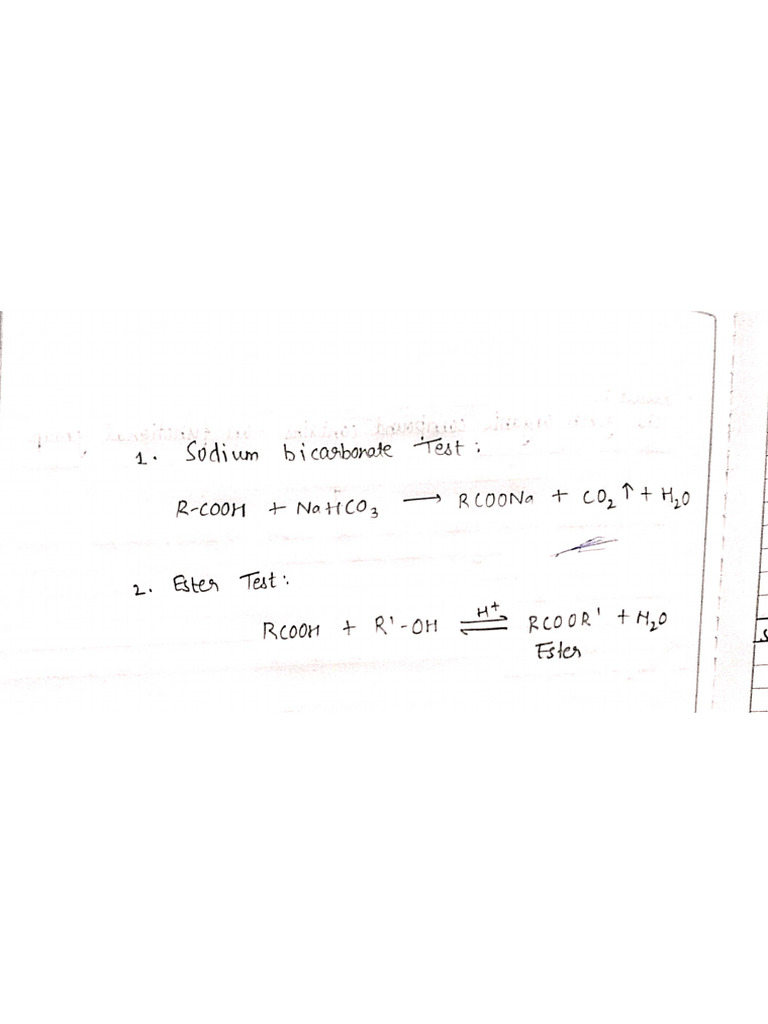 1. Sodium bicarbonate Test:
R-COOH + NaHCO₃ ⟶ RCOONa + CO₂↑ + H₂O
2. Ester Test:
RCOOH + R'-OH ⇌ H⁺ RCOOR' + H₂O
Ester